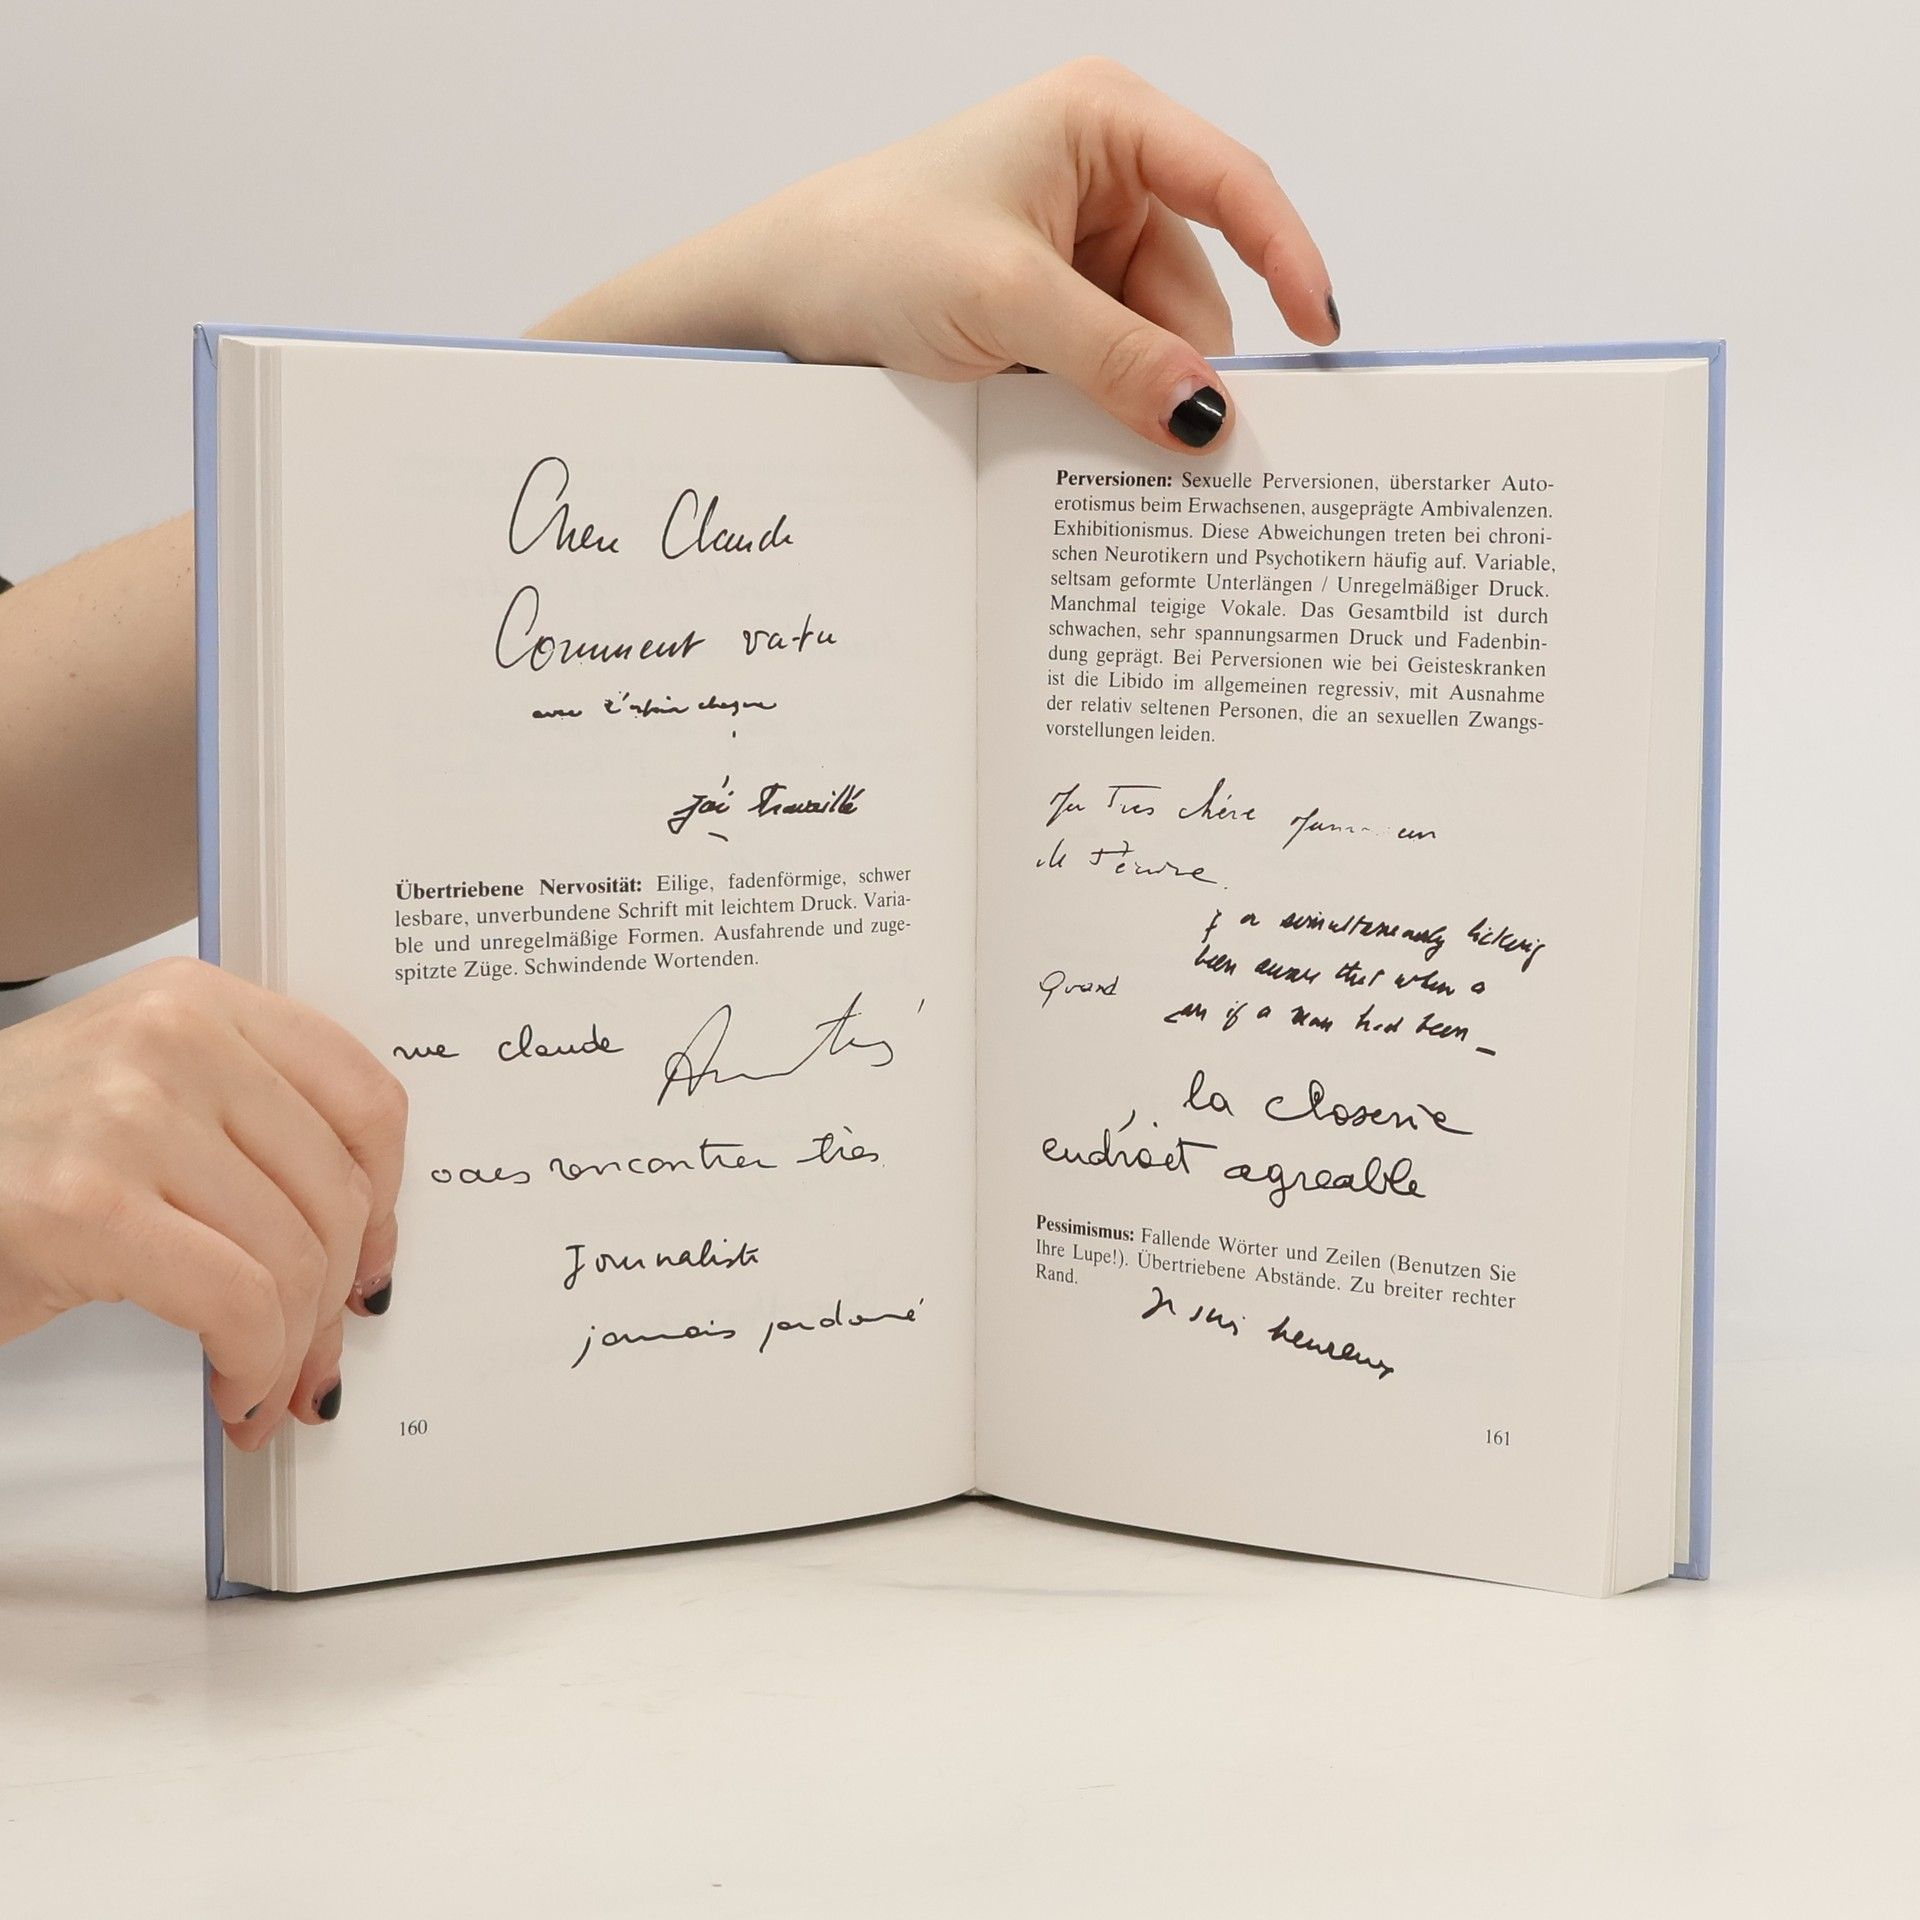 Cher Claude
Comment va-tu
j'ai travaillé
Übertriebene Nervosität: Eilige, fadenförmige, schwer
lesbare, unverbundene Schrift mit leichtem Druck. Varia-
ble und unregelmäßige Formen. Ausfahrende und zuge-
spitzte Züge. Schwindende Wortenden.
rue claude
rencontrer très
Journaliste
jamais
160
Perversionen: Sexuelle Perversionen, überstarker Auto-
erotismus beim Erwachsenen, ausgeprägte Ambivalenzen.
Exhibitionismus. Diese Abweichungen treten bei chroni-
schen Neurotikern und Psychotikern häufig auf. Variable,
seltsam geformte Unterlängen / Unregelmäßiger Druck.
Manchmal teigige Vokale. Das Gesamtbild ist durch
schwachen, sehr spannungsarmen Druck und Fadenbin-
dung geprägt. Bei Perversionen wie bei Geisteskranken
ist die Libido im allgemeinen regressiv, mit Ausnahme
der relativ seltenen Personen, die an sexuellen Zwangs-
vorstellungen leiden.
Ma Très chère
a simultaneously
been aware that when a
Quand
if a man had been
la closerie
endroit agreable
Pessimismus: Fallende Wörter und Zeilen (Benutzen Sie
Ihre Lupe!). Übertriebene Abstände. Zu breiter rechter
Rand.
Je suis heureux
161